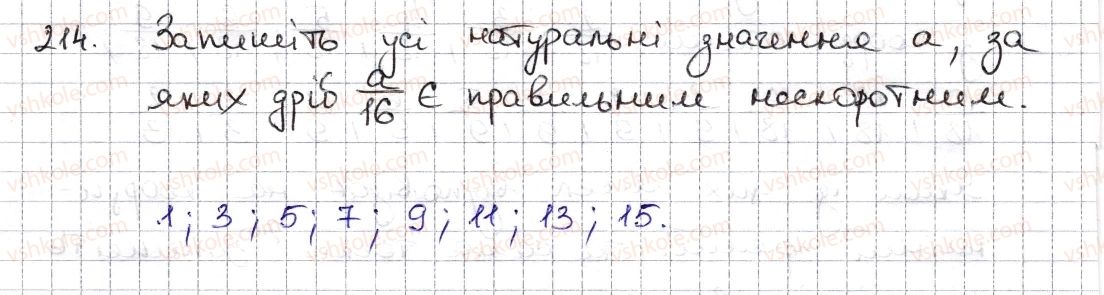 214. Запишіть усі натуральні значення a, за
яких дріб a/16 є правильним нескоротним.
1; 3; 5; 7; 9; 11; 13; 15.